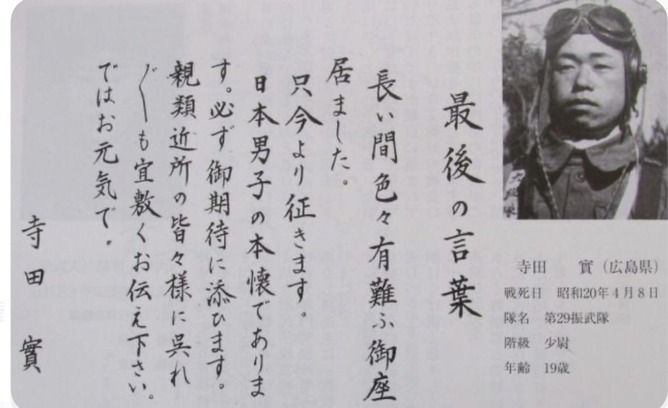 最後の言葉
長い間色々有難ふ御座
居ました。
只今より征きます。
日本男子の本懐でありま
す。必ず御期待に添ひます。
親類近所の皆々様に呉れ
〴〵も宜敷くお伝え下さい。
ではお元気で。
寺田實
寺田　實（広島県）
戦死日　昭和20年４月８日
隊名　第29振武隊
階級　少尉
年齢　19歳